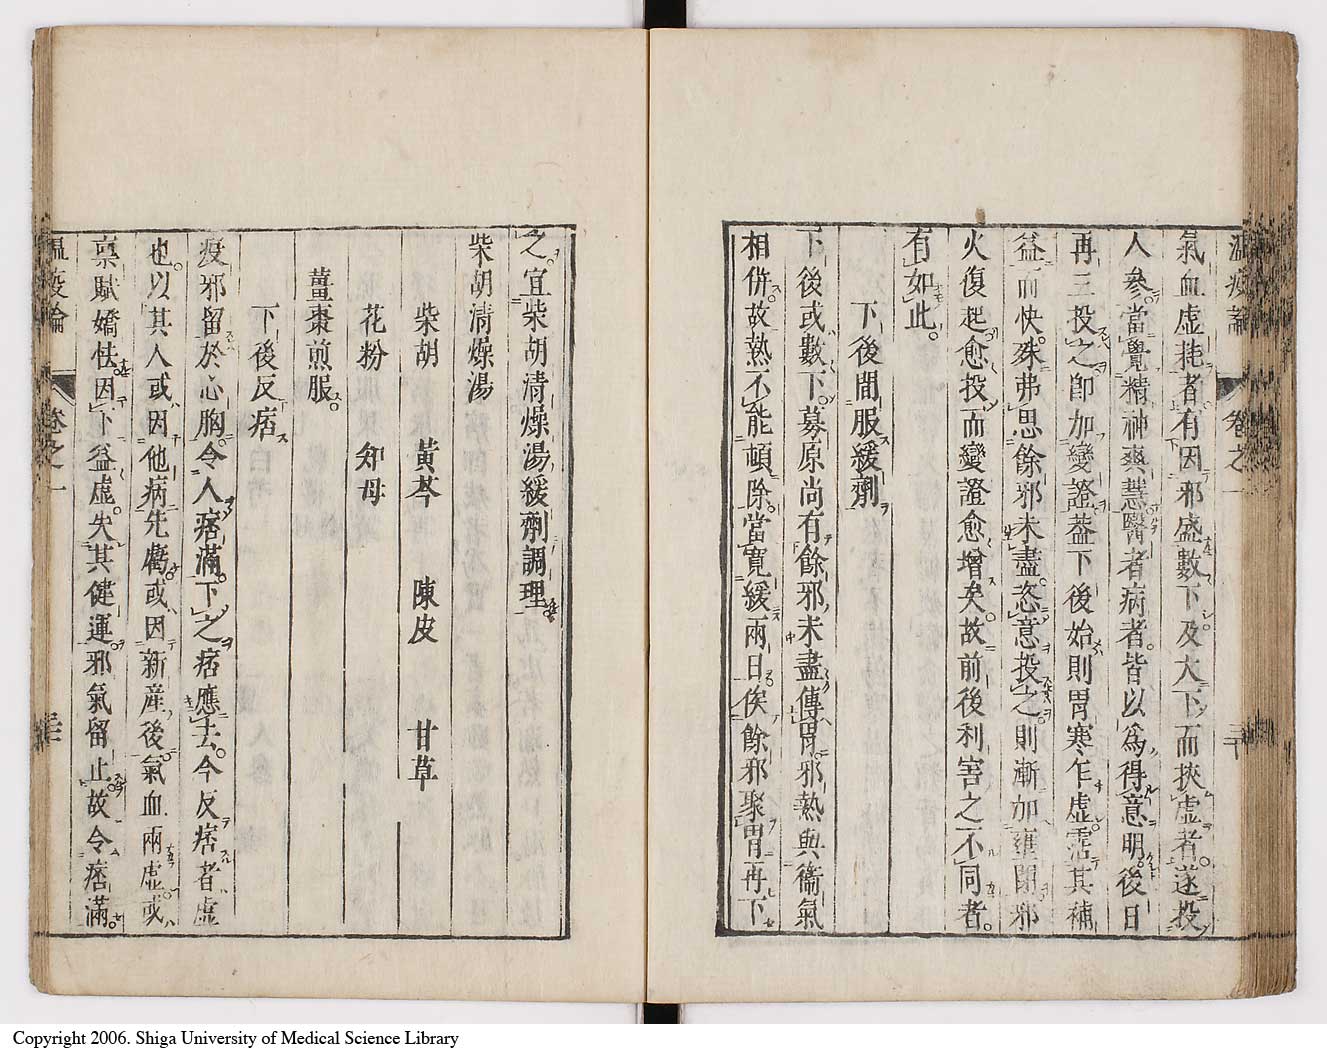 溫疫論 卷之一 二十
氣血虛耗者有因邪盛數下及大下而挾虛者遂投
人參當覺精神爽慧醫者病者皆以爲得意明後日
再三投之卽加變證葢下後始則胃寒乍虛沾其補
益而快殊弗思餘邪未盡恣意投之則漸加壅閉邪
火復起愈投而變證愈增矣故前後利害之不同者
有如此
下後間服緩劑
下後或數下募原尚有餘邪未盡傳胃邪熱與衞氣
相併故熱不能頓除當寬緩兩日俟餘邪聚胃再下
之宜柴胡清燥湯緩劑調理
柴胡清燥湯
柴胡 黃芩 陳皮 甘草
花粉 知母
薑棗煎服
下後反痞
疫邪留於心胸令人痞滿下之痞應去今反痞者虛
也以其人或因他病先虧或因新產後氣血兩虛或
稟賦嬌怯因下益虛失其健運邪氣留止故令痞滿
溫疫論 卷之一
Copyright 2006. Shiga University of Medical Science Library